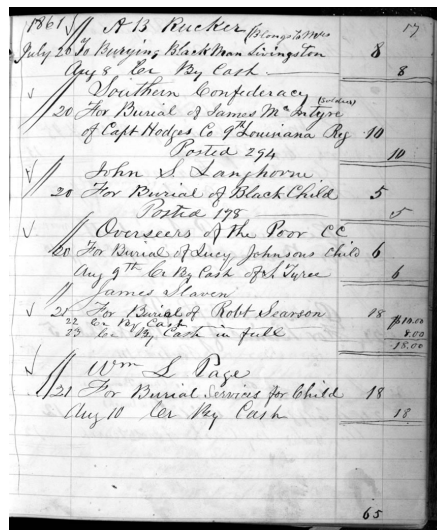 1861 // A B Rucker (Blongs to Mrs 17
July 20 To Burying Black Man Livingston 8
Aug 8 Cr By Cash 8
// Southern Confederacy (Soldier)
20 For Burial of James McIntyre
of Capt Hodges Co 9th Louiniana Reg 10
Posted 294 10
// John S Langhorne
20 For Burial of Black Child 5
Posted 178 5
// Overseers of the Poor CC
20 For Burial of Lucy Johnsons Child 6
Aug 9th Cr By Cash of S Tyree 6
// James Slaven
21 For Burial of Robt Searson 18 $10.00
22 Cr By Cash 8.00
23 Cr By Cash in full 18.00
// Wm L Page
21 For Burial Services for Child 18
Aug 10 Cr By Cash 18
65